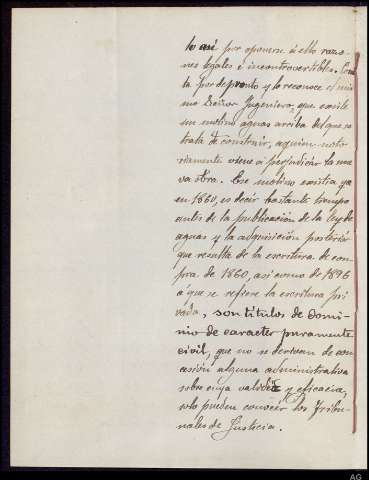 lo así por oponerse á ello razo-
nes legales é incontrovertibles. Cons
ta por de pronto y lo reconoce el mis
mo Señor Ingeniero, que existe
un molino aguas arriba del que se
trata de construir, á quien noto-
riamente viene á perjudicar la nue
va obra. Ese molino existia ya
en 1860, es decir bastante tiempo
antes de la publicación de la ley de
aguas y la adquisición posterior
que resulta de la escritura de com-
pra de 1860, asi como de 1896
á que se refiere la escritura pri
vada, son títulos de domi-
nio de caracter puramente
civil, que no se derivan de con-
cesión alguna administrativa
sobre cuya validéz y eficacia,
solo pueden conocer los Tribu-
nales de Justicia.
AG